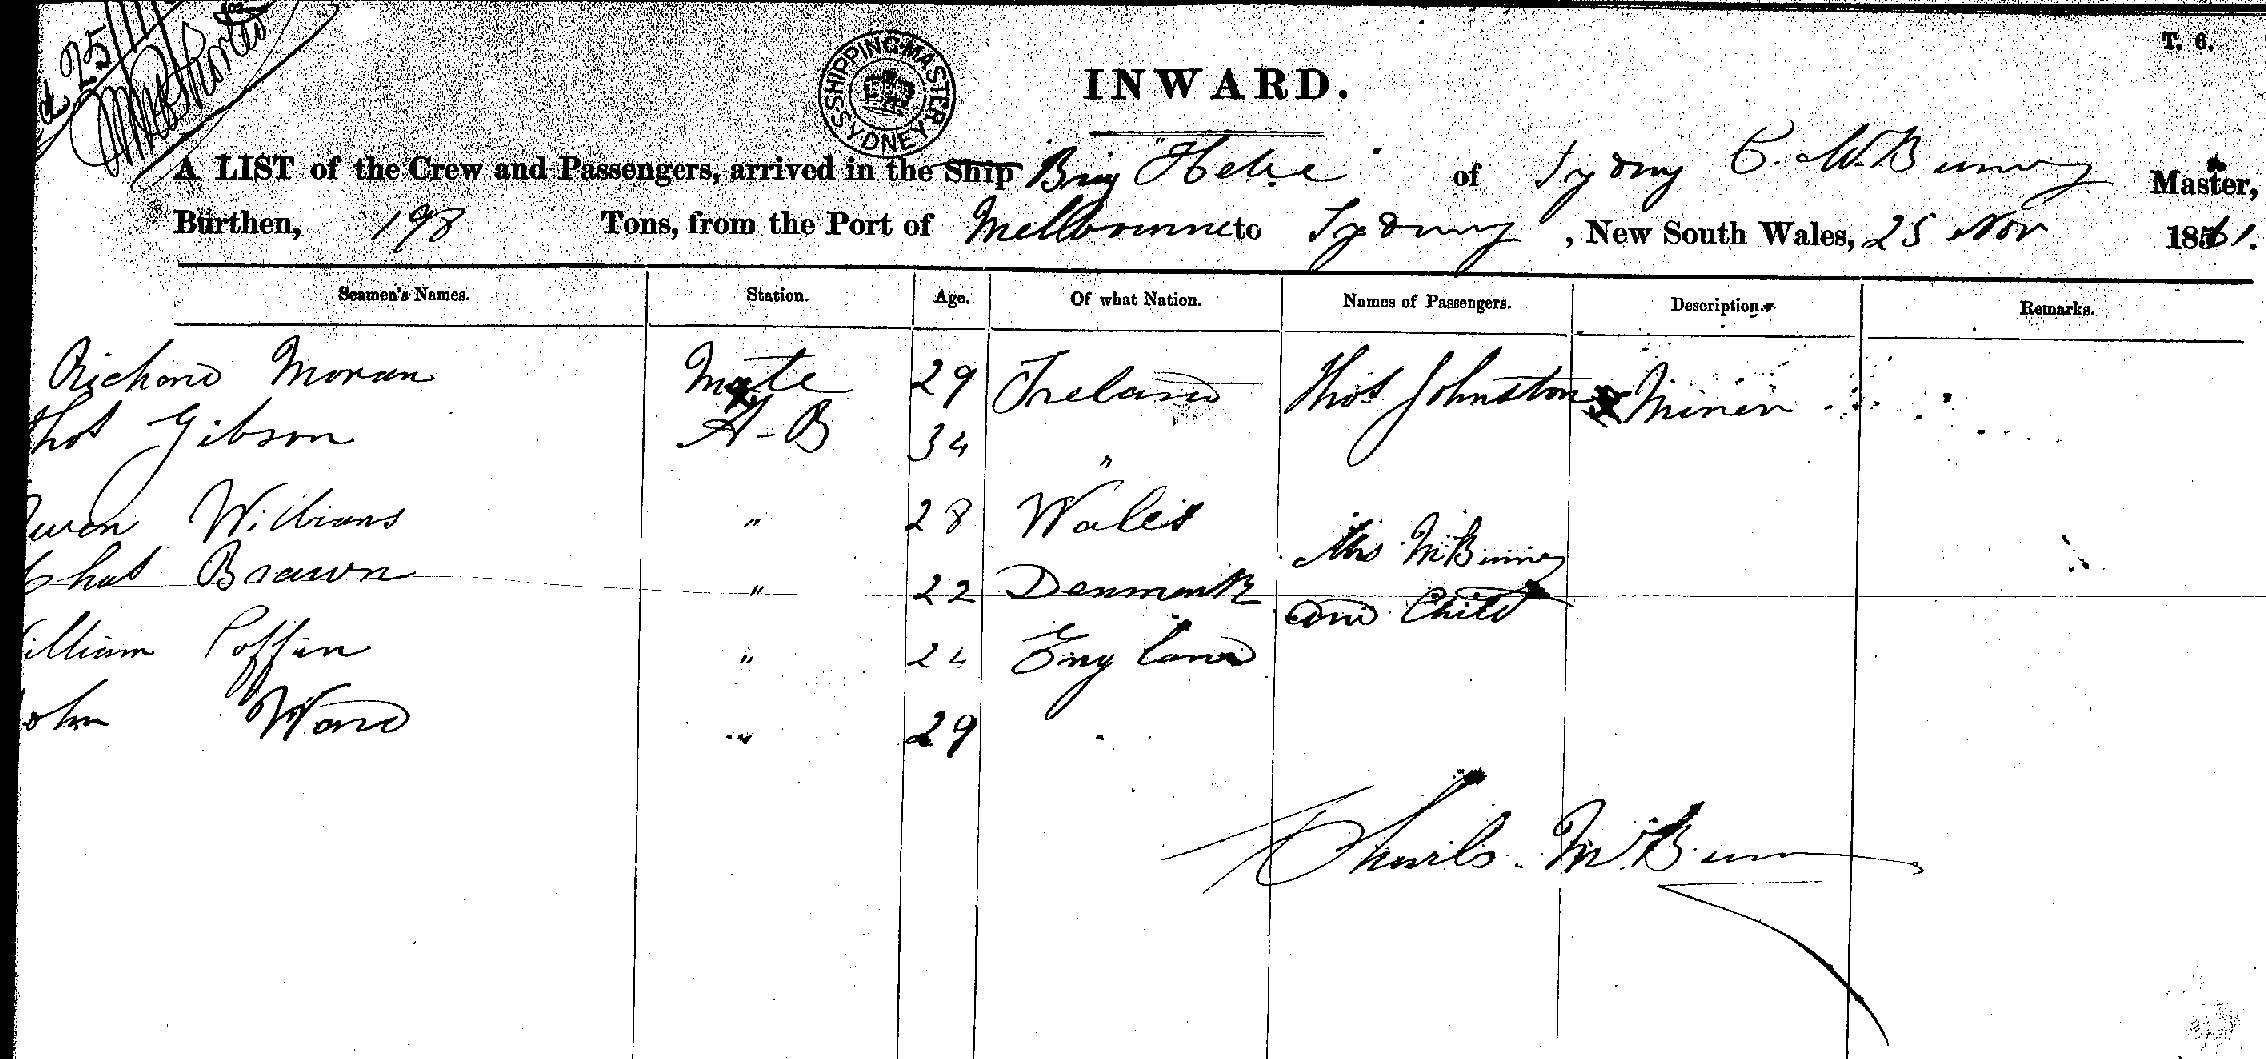 T. 6.
SHIPPING MASTER
SYDNEY
INWARD.
A LIST of the Crew and Passengers, arrived in the Ship Brig Hebe of Sydney C. McBurney Master,
Burthen, 198 Tons, from the Port of Melbourne to Sydney, New South Wales, 25 Nov 1861.
Seamen's Names. Station. Age. Of what Nation. Names of Passengers. Description. Remarks.
Richard Moran Mate 29 Ireland Thos Johnston Miner
Thos Gibson A-B 34 "
Owen Williams " 28 Wales
Mrs McBurney
Chas Brawn " 22 Denmark
and Child
William Coffin " 24 England
John Ward " 29 "
Charles McBurney